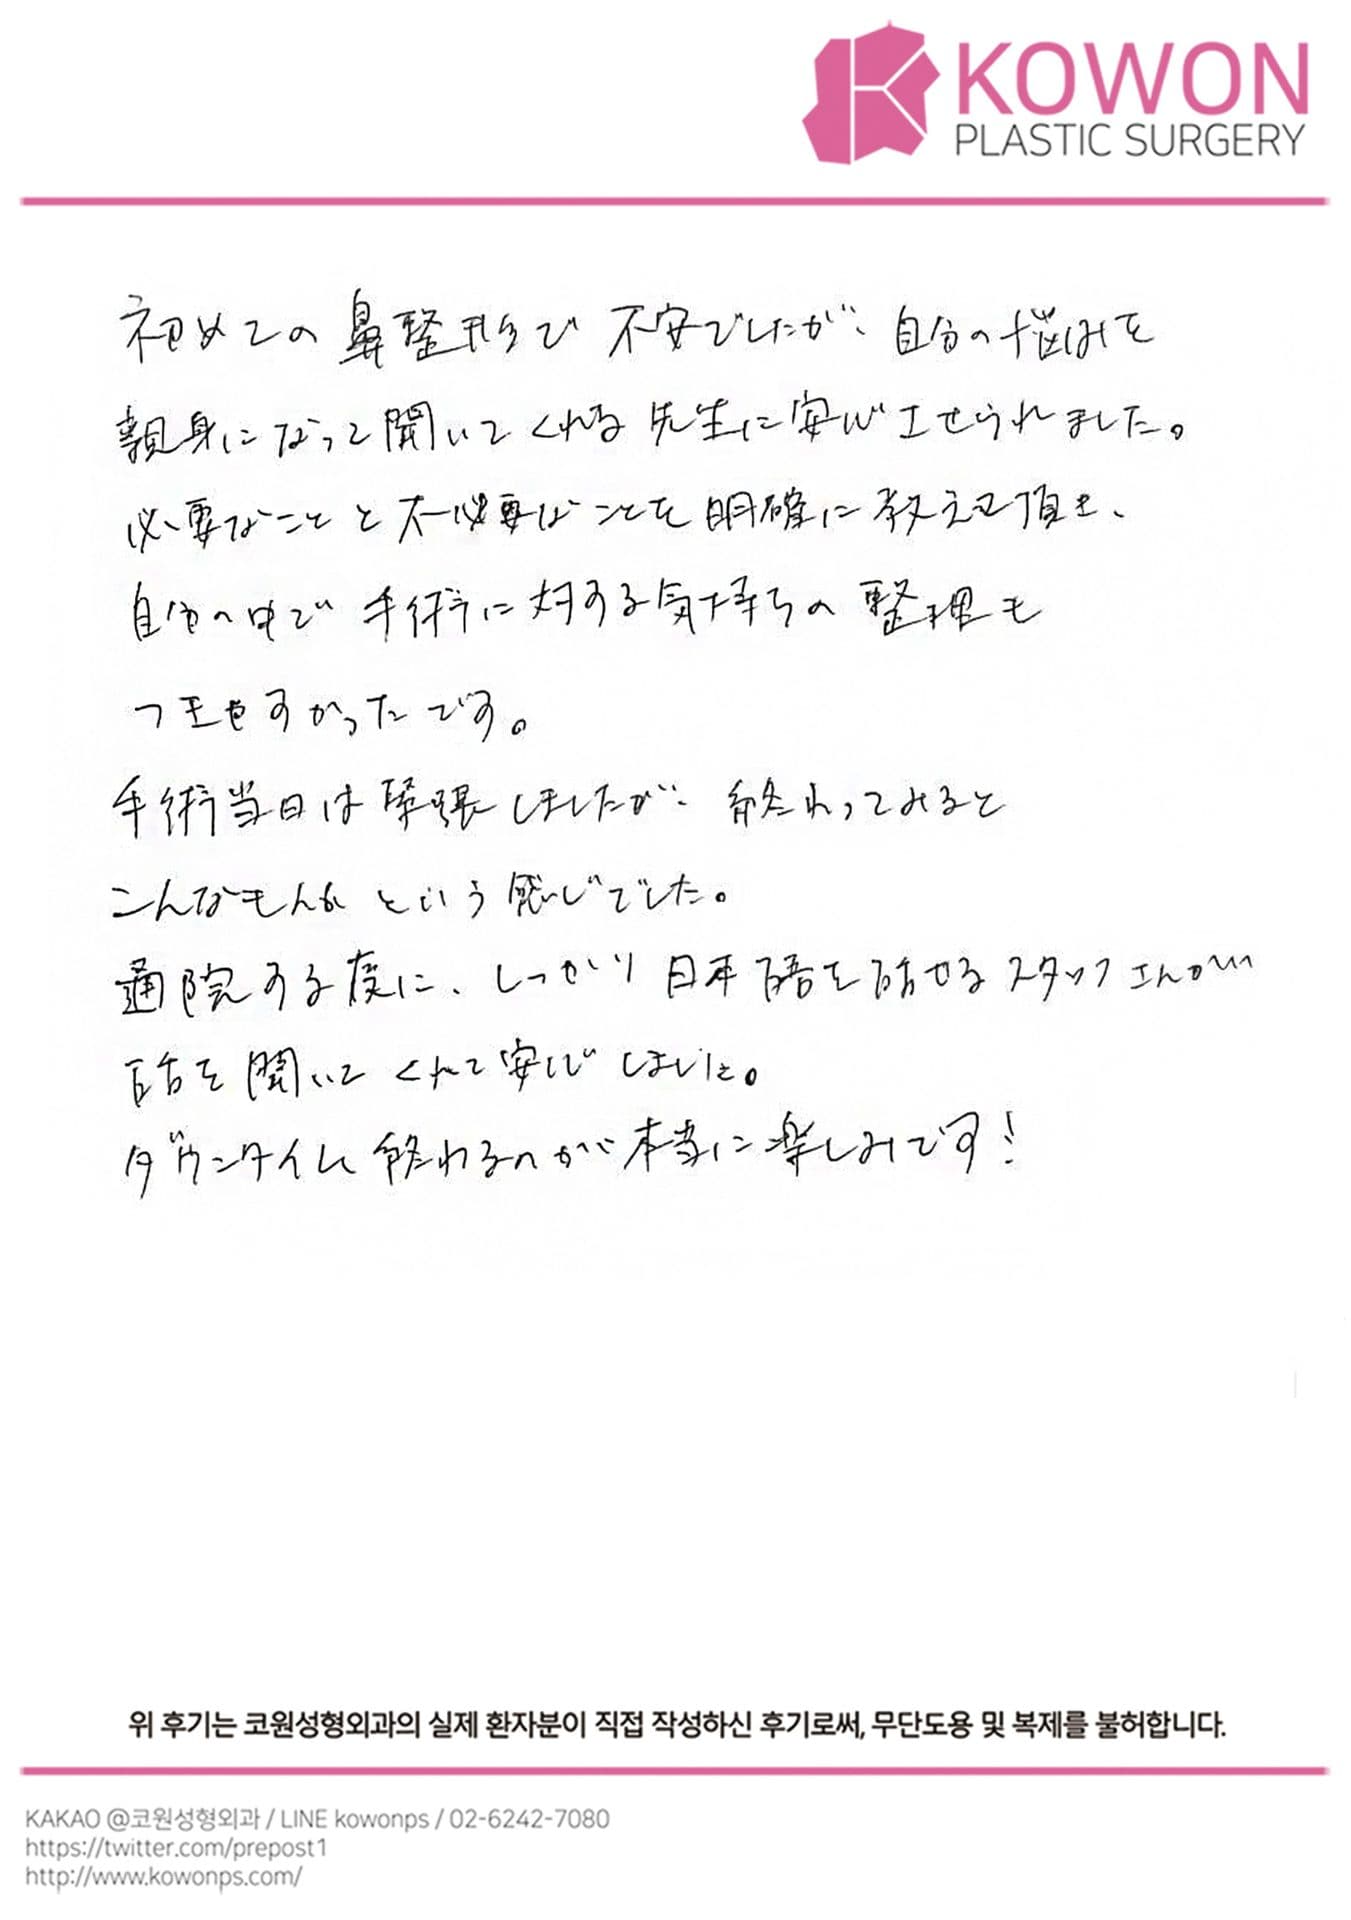 KOWON
PLASTIC SURGERY
初めての鼻整形で不安でしたが、自分の悩みを
親身になって聞いてくれる先生に安心させられました。
必要なことと不必要なことを明確に教えて頂き、
自分の中で手術に対する気持ちの整理も
つきやすかったです。
手術当日は緊張しましたが、終わってみると
こんなもんかという感じでした。
通院する度に、しっかり日本語を話せるスタッフさんが
話を聞いてくれて安心しました。
ダウンタイム終わるのが本当に楽しみです!
위 후기는 코원성형외과의 실제 환자분이 직접 작성하신 후기로써, 무단도용 및 복제를 불허합니다.
KAKAO @코원성형외과 / LINE kowonps / 02-6242-7080
https://twitter.com/prepost1
http://www.kowonps.com/